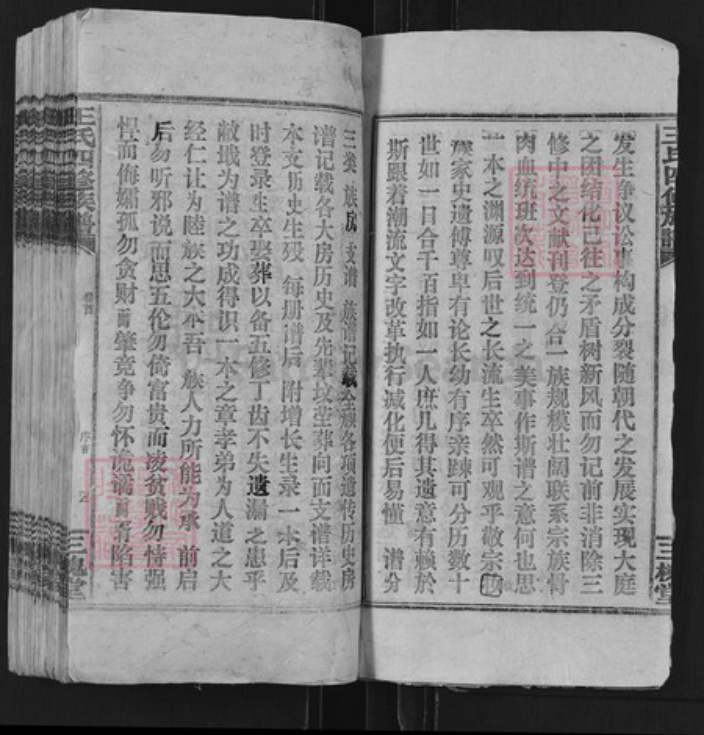 王氏四修族谱
三槐堂
发生争议讼事构成分裂随朝代之发展实现大庭
之团结化已往之矛盾树新风而勿记前非消除三
修中之文献刊登仍合一族规模壮阔联系宗族骨
肉血统班次达到统一之美事作斯谱之意何也思
一本之渊源叹后世之长流生卒然可观乎敬宗收
族家史遗傅尊卑有论长幼有序亲踈可分历数十
世如一日合千百指如一人庶几得其遗意有赖於
斯跟着潮流文字改革执行减化便后易懂 谱分
三类 族房支谱 族谱记载全族各项遗传历史房
谱记载各大房历史及先辈坟茔葬向面支谱详载
本支历史生殁 每册谱后 附增长生录一本后及
时登录生卒娶葬以备五修丁齿不失遗漏之患乎
敝珴为谱之功成得识一本之章孝弟为人道之大
经仁让为陸族之大本吾 族人力所能为承 前启
后勿听邪说而思五伦勿倚富贵而凌贫贱勿恃强
悍而侮孀孤勿贪财而肇竞争勿怀诡谲而胥陷害
王氏四修族谱
卷首
序言
三槐堂